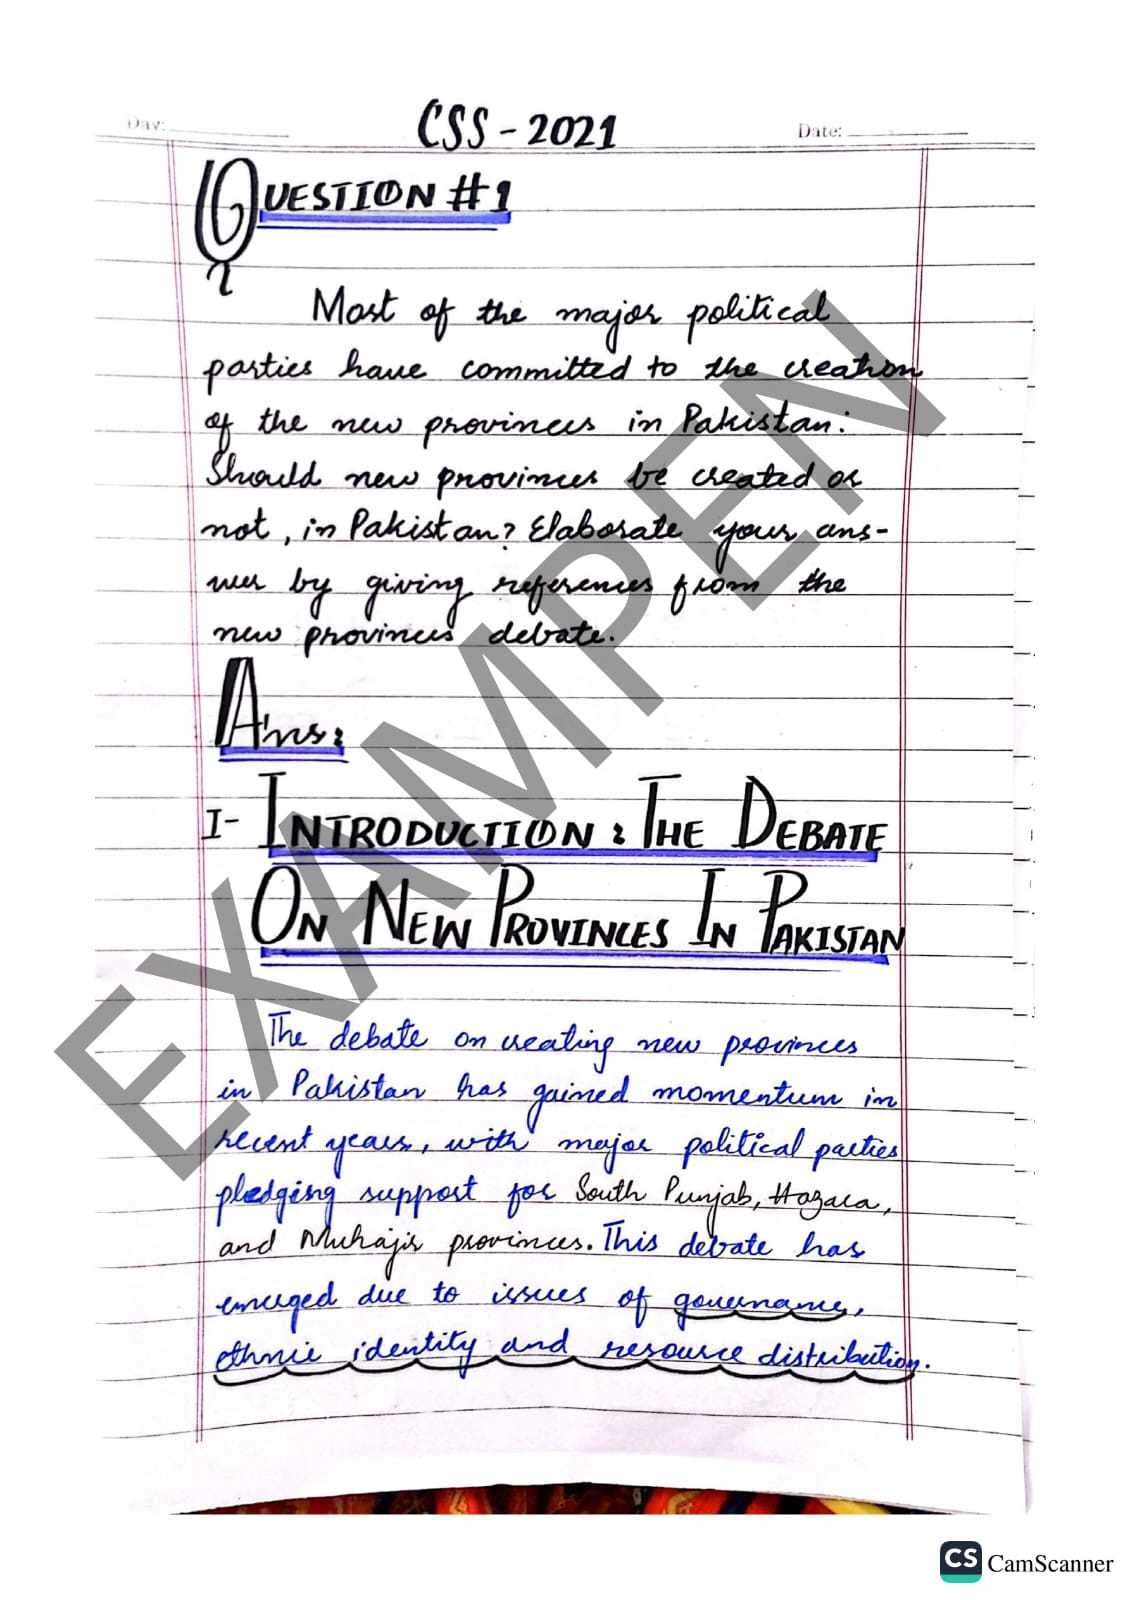 Day:
CSS - 2021
Date:
QUESTION #1
Most of the major political
parties have committed to the creation
of the new provinces in Pakistan.
Should new provinces be created or
not, in Pakistan? Elaborate your ans-
wer by giving references from the
new provinces debate.
Ans:
I- INTRODUCTION: THE DEBATE
ON NEW PROVINCES IN PAKISTAN
The debate on creating new provinces
in Pakistan has gained momentum in
recent years, with major political parties
pledging support for South Punjab, Hazara,
and Muhajir provinces. This debate has
emerged due to issues of governance,
ethnic identity and resource distribution.
EXAMPEN
CS CamScanner